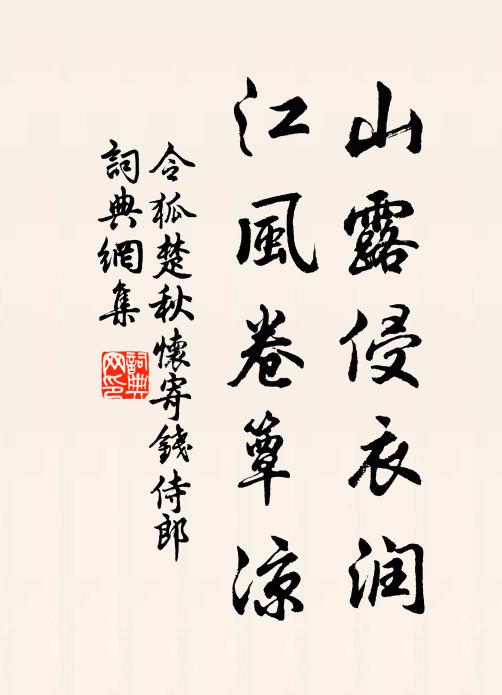 山露侵衣润
江風卷簟涼
令狐楚秋懷寄錢侍郎
詞典網集
詞典
网印